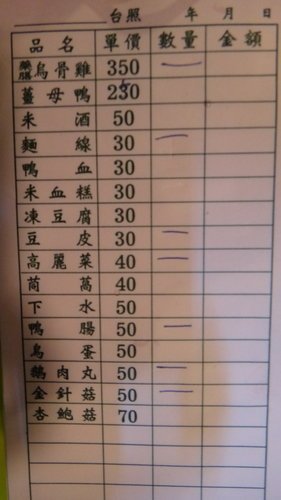 台照 年 月 日
品名 單價 數量 金額
藥膳烏骨雞 350 一
薑母鴨 230
米酒 50
麵線 30 一
鴨血 30
米血糕 30
凍豆腐 30
豆皮 30 一
高麗菜 40 一
茼蒿 40
下水 50
鴨腸 50 一
鳥蛋 50
鵝肉丸 50 一
金針菇 50 一
杏鮑菇 70